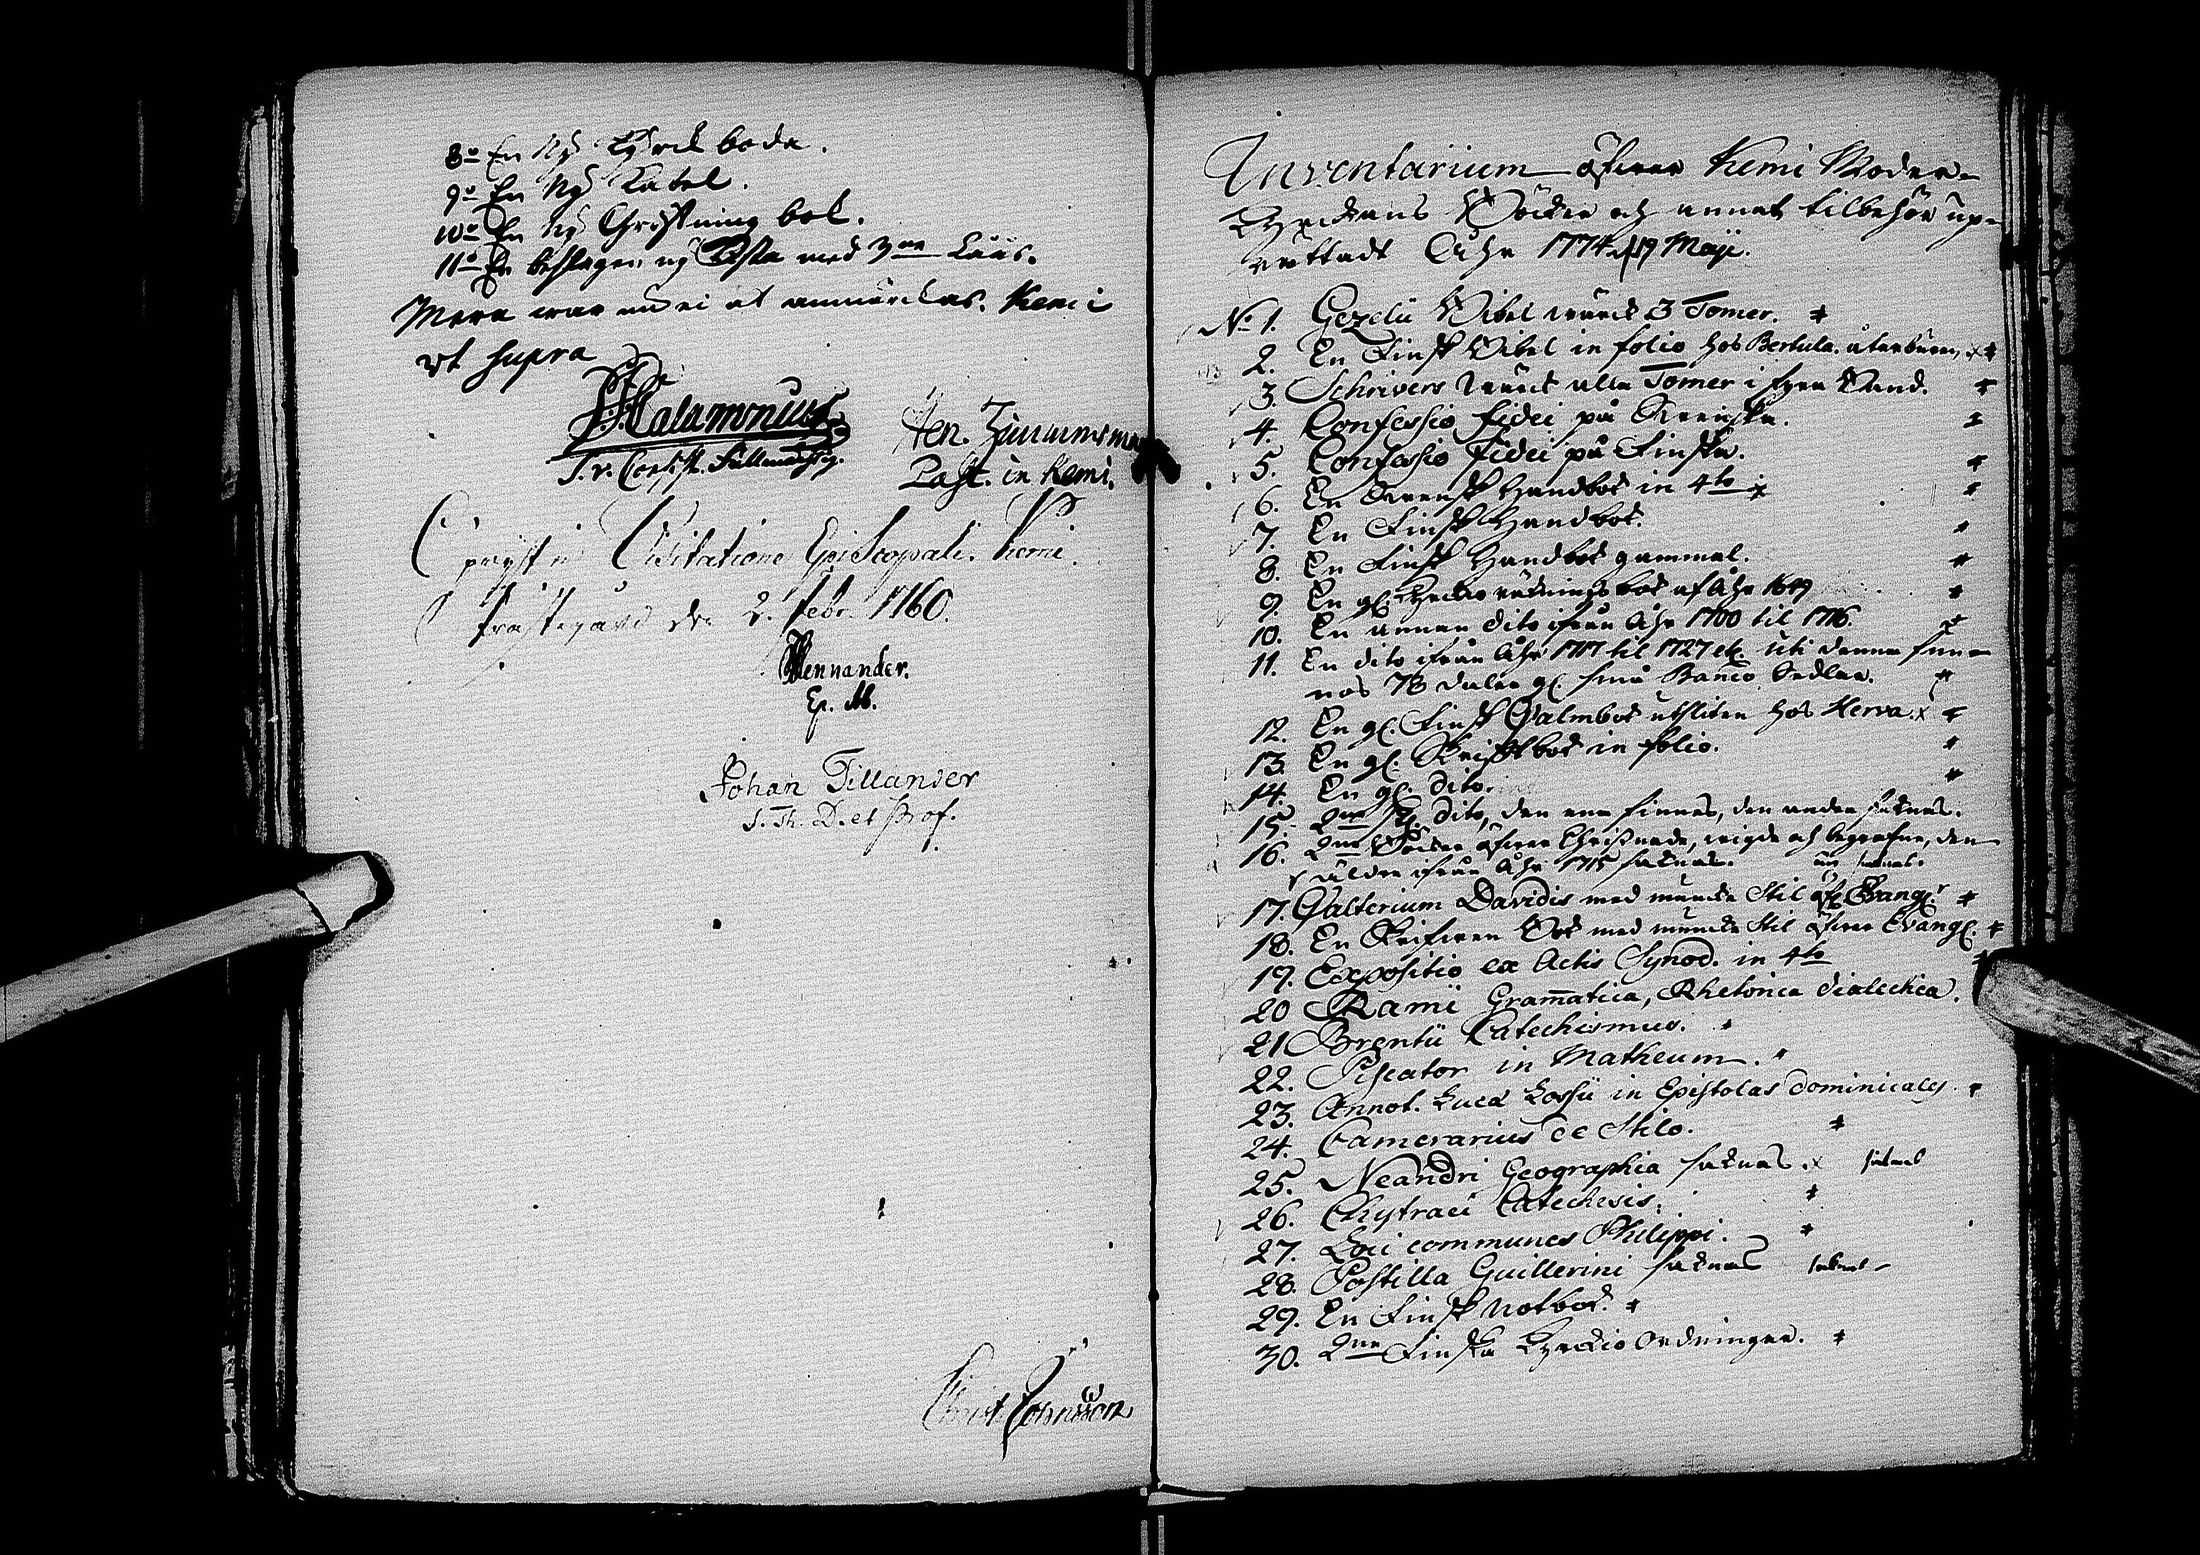 8:o En Ny Kyrck boda.
9:o En Ny Tabel.
10:o En Ny Christning bok.
11:o En beslagen ny Kista med 3:ne Låås.
Mera war nu ei at anmärckas. Kemi
ut supra
Calamnius
Hen. Zimmerman
Past. in Kemi.
Upvijst in Visitatione Episcopali. Kemi
Prästegård den 2. Febr. 1760.
Mennander.
Ep. Ab.
Johan Tillander
S. Th. D. et Prof.
Christ. Johnsson
Inventarium öfwer Kemi Moder-
Kyrckans Böcker och annat tilbehör up-
rettadt Åhr 1774 d. 19 Maji.
No 1. Gezelii Bibel wärck 3 Tomer.
2. En Finsk Bibel in folio hos Bertula. återburen,
3. Schrivers wärck alla Tomer i fyra Band.
4. Confessio fidei på Swenska.
5. Confessio Fidei på Finska.
6. En Swensk Handbok in 4to
7. En Finsk Handbok.
8. En Finsk Handbok gammal.
9. En gl. Kyrckio räknings bok af Åhr 1649
10. En annan dito ifrån Åhr 1700 til 1716.
11. En dito ifrån Åhr 1717 til 1727 etc. uti denna fin-
nas 78 daler gl. små Banco Sedlar.
12. En gl. Finsk Psalmbok utsliten hos Herva.
13. En gl. Skriftbok in folio.
14. En gl. dito.
15. 2:ne gl. dito, den ena finnes, den andra saknas.
16. 2:ne Böcker öfwer Christnade, wigde och begrafne, den
äldre ifrån Åhr 1715 saknas. saknas.
17. Psalterium Davidis med muncke Stil öfr. Evangl.
18. En Skrifwen Bok med muncke Stil öfwer Evangl.
19. Expositio ex Actis Synod. in 4to
20 Rami Gram̄atica, Rhetorica Dialectica.
21 Brentii Catechismus.
22. Piscator in Matheum.
23. Annot. Lucæ Lossii in Epistolas Dominicales.
24. Camerarius de Stilo.
25. Neandri Geographia saknas. saknas
26. Chytraei Catechesis.
27. Loci communes Philippi.
28. Postilla Guillerini saknas saknas
29. En Finsk Notbok.
30. 2:ne Finska Kyrckio Ordningar.